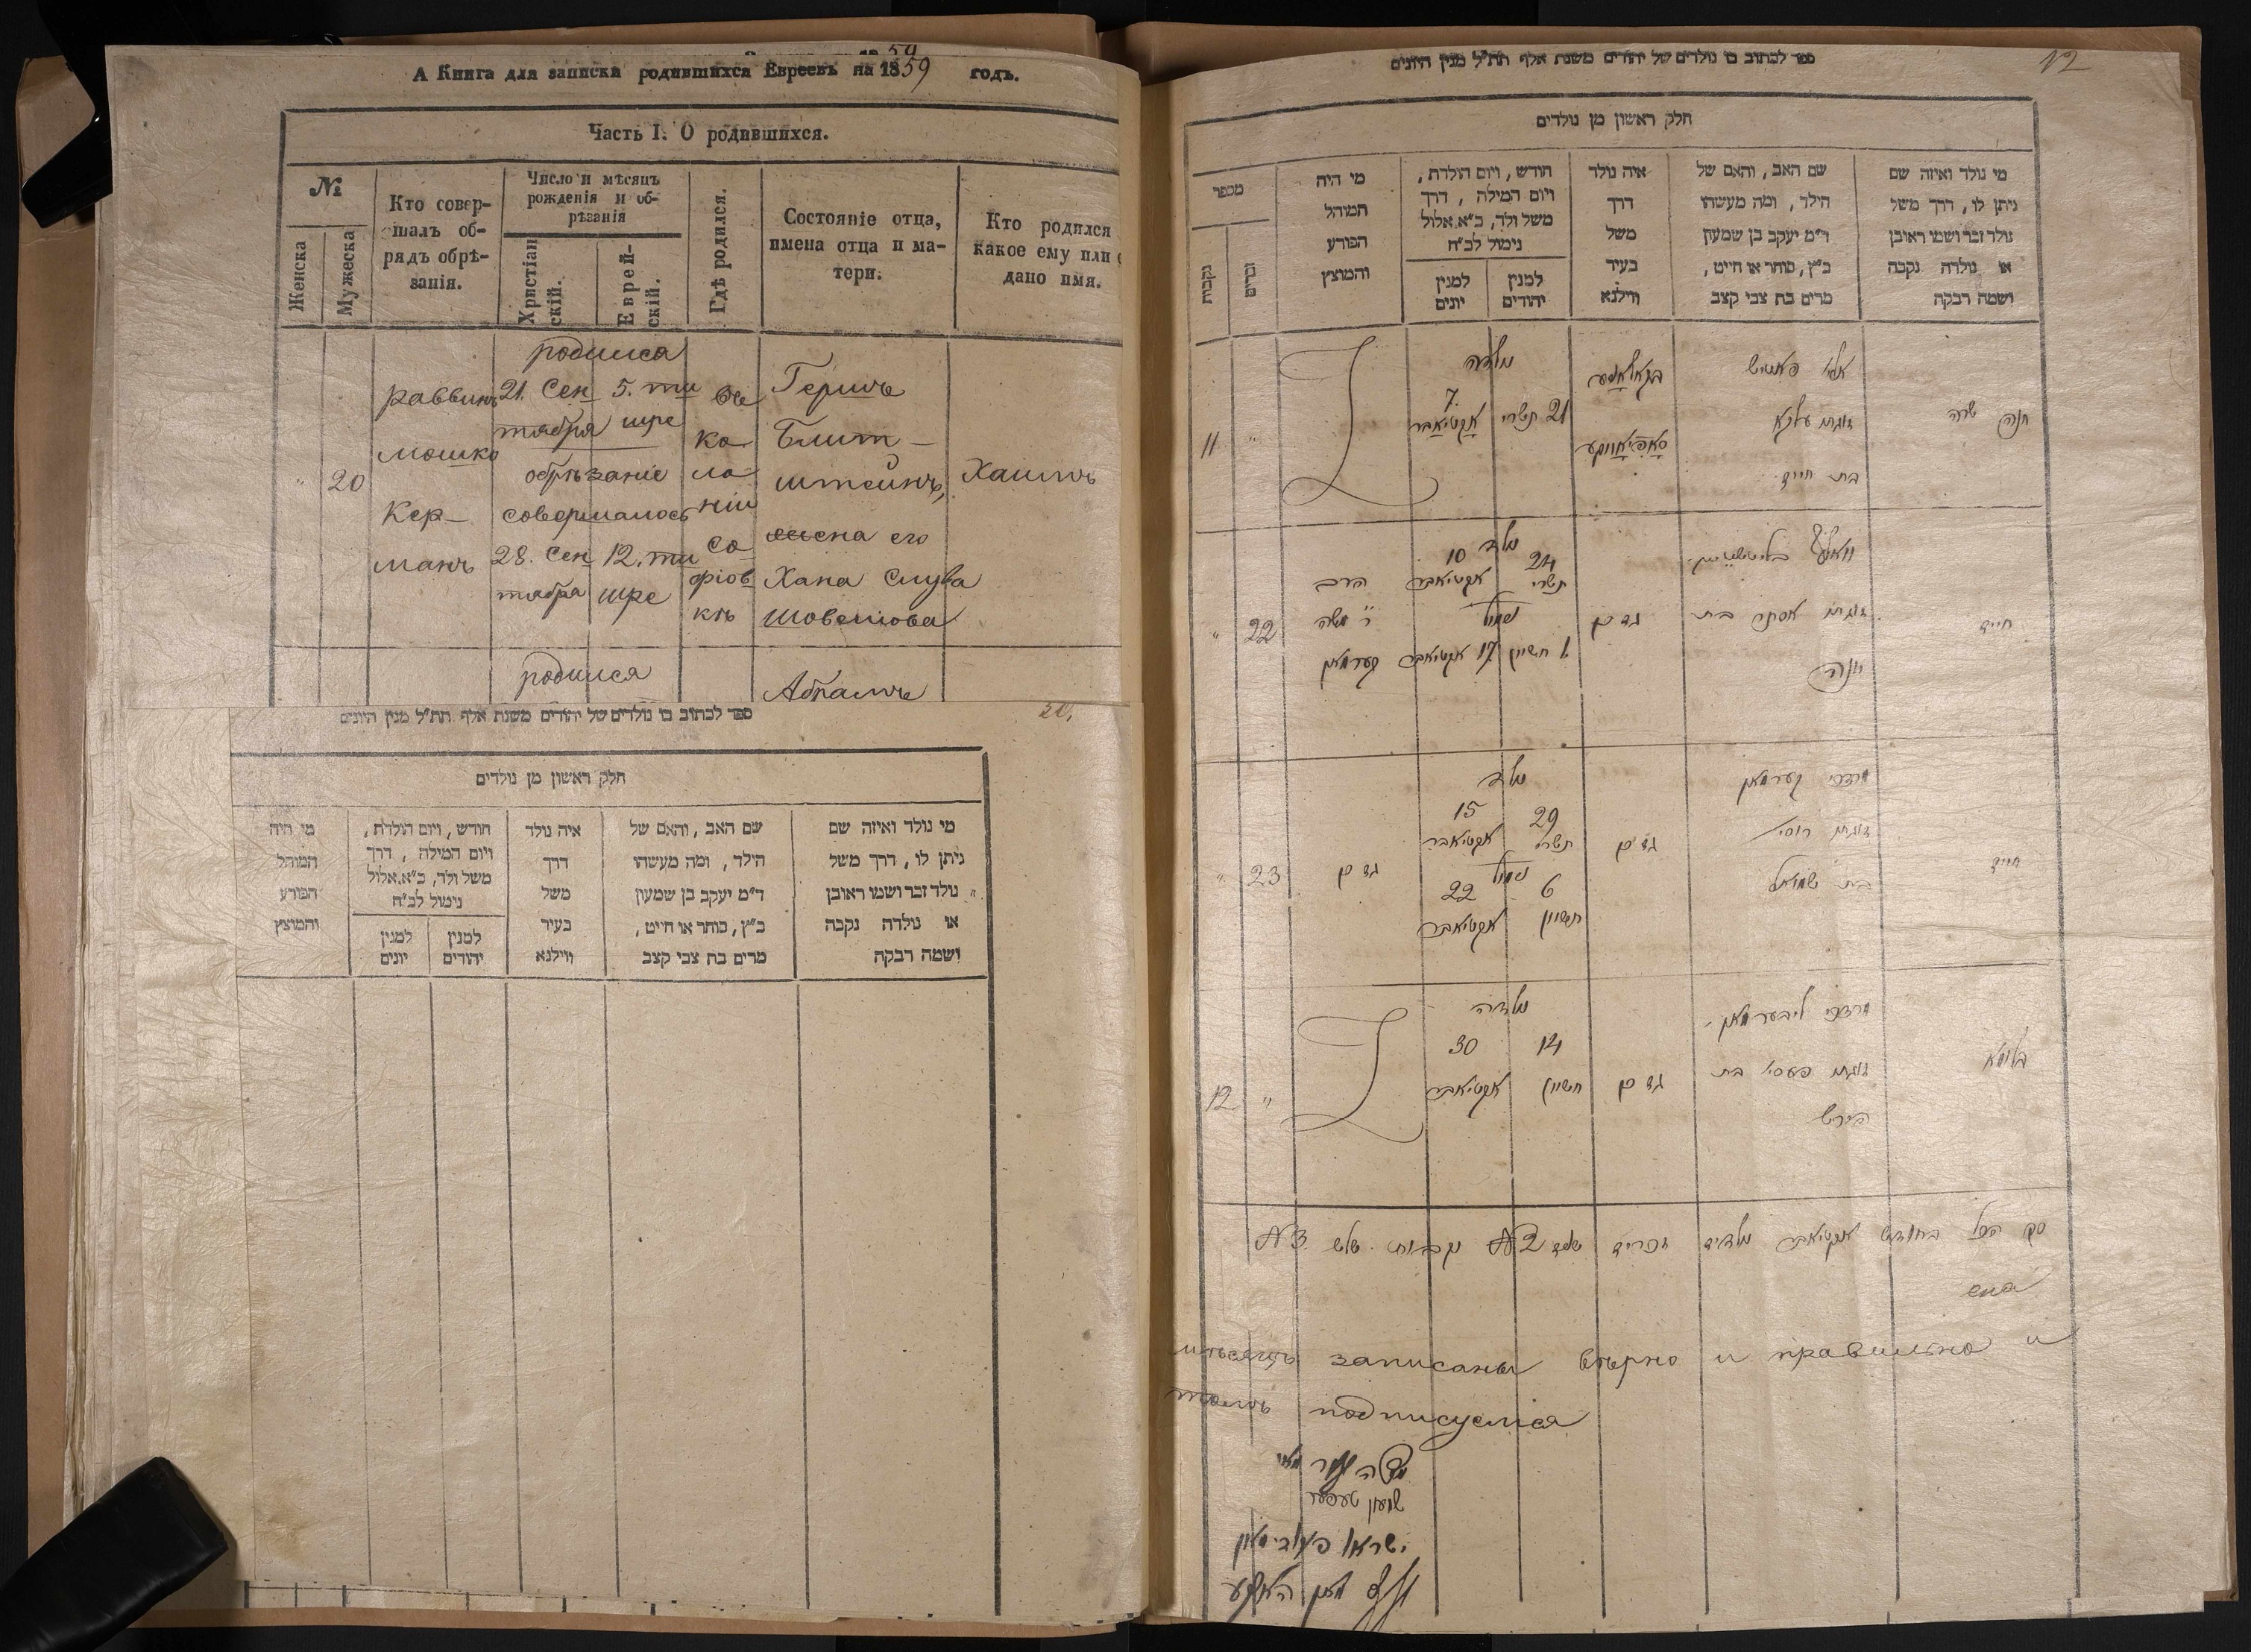 А Книга для записки родившихся Евреевъ на 1859 годъ.
Часть I. О родившихся.
№
Женска
Мужеска
Кто совер-
шалъ об-
рядъ обрѣ-
занія.
Число и мѣсяцъ
рожденія и об-
рѣзанія
Христіан
скій.
Еврей-
скій.
Гдѣ родился.
Состояніе отца,
имена отца и ма-
тери.
Кто родился
какое ему или
дано имя.
"
20
раввинъ
мошко
Кер-
манъ
родился
21. Сен 5. ти
тября шре
обрѣзаніе
совершалось
28. Сен 12. ти
тября шре
Ве
ко
ло
ніи
Со
фіов
кѣ
Гершъ
Блит-
штейнъ,
жена его
Хана Слува
Шовеліова
Хаимъ
родился
Абрамъ
ספר לכתוב בו נולדים של יהודים משנת אלף תת״ל מנין היונים
חלק ראשון מן נולדים
מי נולד ואיזה שם
ניתן לו, דרך משל
נולד זכר ושמו ראובן
או נולדה נקבה
ושמה רבקה
עם האב, והאם של
הילד, ומה מעשהו
ד״מ יעקב בן שמעון
כ״ץ, סוחר או חייט,
מרים בת צבי קצב
איה נולד
דרך
משל
בעיר
ווילנא
חודש, ויום הולדת,
ויום המילה, דרך
משל ולד, כ״א.אלול
נימול לכ״ח
למנין
יהודים
למנין
יונים
מי היה
המוהל
הפורע
והמוצץ
12
ספר לכתוב בו נולדים של יהודים משנת אלף תת״ל מנין היונים
חלק ראשון מן נולדים
מי נולד ואיזה שם
ניתן לו, דרך משל
נולד זכר ושמו ראובן
או נולדה נקבה
ושמה רבקה
שם האב, והאם של
הילד, ומה מעשהו
ד״מ יעקב בן שמעון
כ״ץ, סוחר או חייט,
מרים בת צבי קצב
איה נולד
דרך
משל
בעיר
ווילנא
חודש, ויום הולדת,
ויום המילה, דרך
משל ולד, כ״א.אלול
נימול לכ״ח
למנין
יהודים
למנין
יונים
מי היה
המוהל
הפורע
והמוצץ
מספר
זכרים
נקבות
חנה שרה
זוגתו
בת חיים
נולדה
21 תשרי
7 אקטיאבר
"
11
חיים
זוגתו אסתר בת
יונה
גם כן
נולד
24 תשרי
10 אקטיאבר
נימול
1 חשוון 17 אקטיאבר
הרב
ר׳ משה
קערמאן
22
"
חיים
מרדכי קערמאן
זוגתו רוסי
בת שמואל
גם כן
נולד
29 תשרי
15 אקטיאבר
נימול
6 חשוון
22 אקטיאבר
גם כן
23
"
בלומא
מרדכי ליבערמאן
זוגתו פעסי בת
הירש
גם כן
נולדה
14 חשוון
30 אקטיאבר
"
12
סך הכל בחודש אקטיאבר נולדים זכרים №2 נקבות שלש №3
мѣсяцъ записаны вѣрно и правильно и
томъ подписуемся
שמעון
ישראל